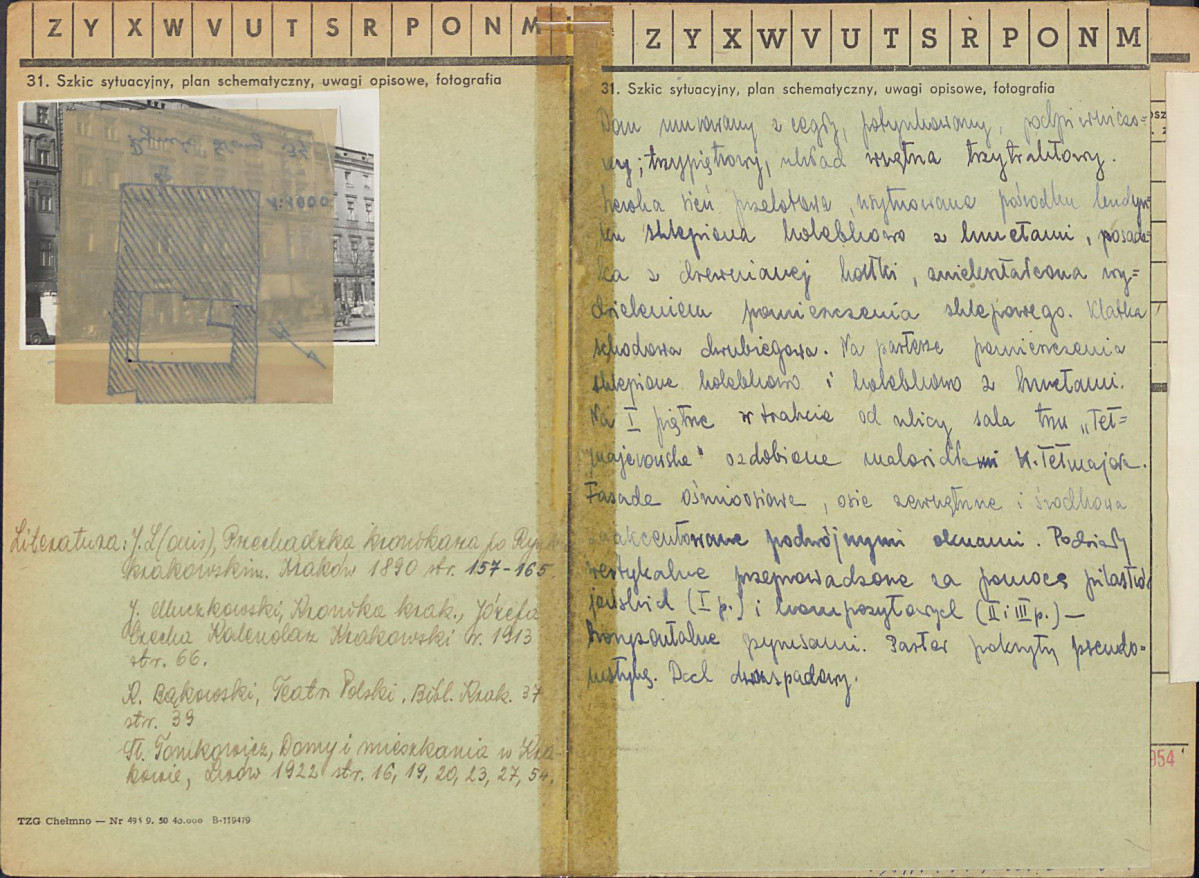 Z Y X W V U T S R P O N M
31. Szkic sytuacyjny, plan schematyczny, uwagi opisowe, fotografia
Literatura: J. L(ouis), Przechadzka kronikarza po Rynku
krakowskim. Kraków 1890 str. 157-165.
J. Muczkowski, Kronika krak., Józefa
Czecha Kalendarz Krakowski r. 1913
str. 66.
K. Bąkowski, Teatr Polski, Bibl. Krak. 37
str. 39
St. Tomkowicz, Domy i mieszkania w Kra-
kowie, Lwów 1922 str. 16, 19, 20, 23, 27, 54.
TZG Chełmno — Nr 495 9. 50 40.000 B-119419
Z Y X W V U T S R P O N M
31. Szkic sytuacyjny, plan schematyczny, uwagi opisowe, fotografia
Dom murowany z cegły, potynkowany, podpiwniczo=
ny; trzypiętrowy, układ wnętrza trzytraktowy.
Szeroka sień przelotowa, usytuowana pośrodku budyn
ku sklepiona kolebkowo z lunetami, posadz-
ka z drewnianej kostki, zniekształcona wy=
dzieleniem pomieszczenia sklepowego. Klatka
schodowa dwubiegowa. Na parterze pomieszczenia
sklepione kolebkowo i kolebkowo z lunetami.
Na I piętrze w trakcie od ulicy sala tzw „Tet=
majerowska" ozdobiona malowidłami W. Tetmajera.
Fasada ośmioosiowa, osie zewnętrzne i środkowa
zaakcentowane podwójnymi oknami. Podziały
wertykalne przeprowadzone za pomocą pilastrów
jońskich (I p.) i kompozytowych (II i III p.) —
horyzontalne gzymsami. Parter pokryty pseudo-
rustyką. Dach dwuspadowy.
954